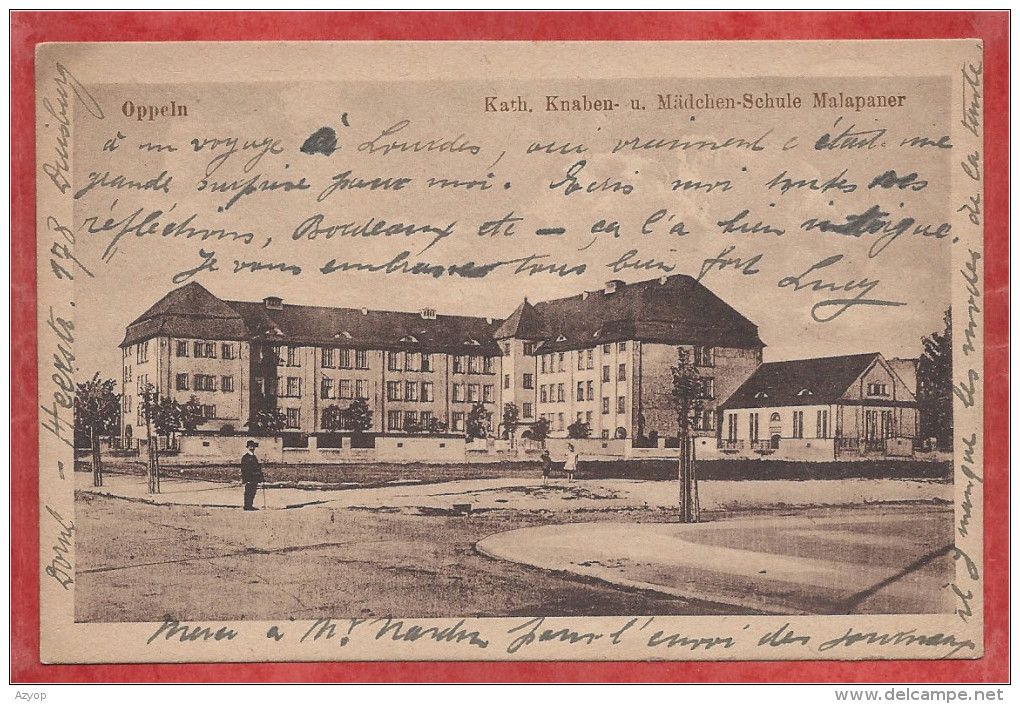 Oppeln
Kath. Knaben- u. Mädchen-Schule Malapaner
à un voyage à Lourdes, oui vraiment c'était une
grande surprise pour moi. Ecris moi toutes des
réflèchions, Bordeaux etc — ça l'a bien intrigue.
Je vous embrasse tous bien fort Lucy
Merci à Mr Nardin pour l'envoi des journaux
il y manque les modes de la tante.
- Heerstr. 178 Duisburg
Azyop
www.delcampe.net